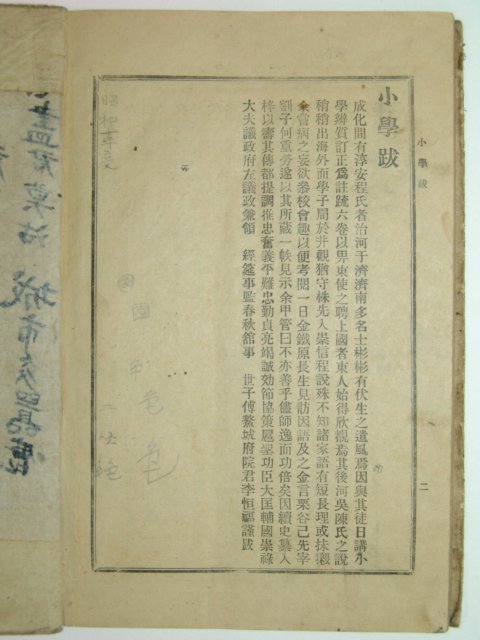 小學跋
成化間有淳安程氏者治河于濟濟南多名士彬彬有伏生之遺風焉因與其徒日講小
學辨質訂正爲註疏六卷以畀東使之聘上國者東人始得欣觀焉其後河吳陳氏之說
稍稍出海外而學子局於井觀猶守株先入崇信程說殊不知諸家語有短長理或抹摋
余嘗病之妄欲叅校會趣以便考閱一日金鐵原長生見訪因語及之金言栗谷已先宰
割子何重勞遂以其所藏一帙見示余甲管曰不亦善乎儘師逸而功倍矣因續史纂入
梓以壽其傳都提調推忠奮義平難忠勤貞亮竭誠効節協策扈聖功臣大匡輔國崇祿
大夫議政府左議政兼領 經筵事監春秋館事 世子傅鰲城府院君李恒福謹跋
小學跋
二
昭和